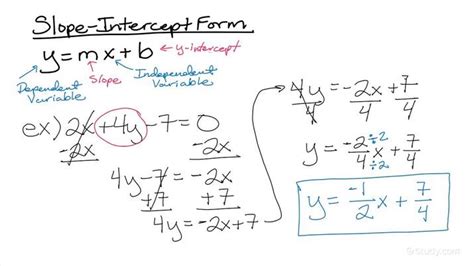 Slope-Intercept Form
y = mx + b ← y-intercept
Dependent Variable
Slope
Independent Variable
ex) 2x + 4y - 7 = 0
-2x -2x
4y - 7 = -2x
+7 +7
4y = -2x + 7
4y/4 = -2x/4 + 7/4
y = -2÷2/4÷2 x + 7/4
y = -1/2 x + 7/4
Study.com